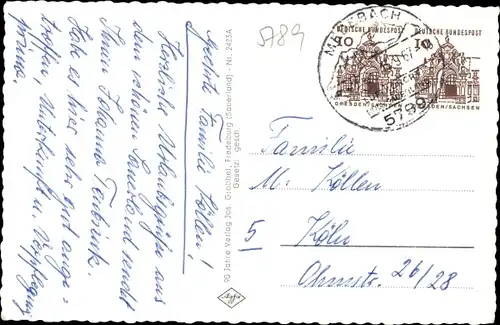 Medebach
5789
DEUTSCHE BUNDESPOST
DEUTSCHE BUNDESPOST
10
10
DRESDEN/SACHSEN
5789
Mechtr. Familie Köllen!
Herzliche Urlaubsgrüße aus
dem schönen Sauerland sendet
Ihnen Johanna
Hab es hier sehr gut ange-
troffen, Unterkunft u. Verpflegung
prima.
90 Jahre Verlag Jos. Grobbel, Fredeburg (Sauerland) - Nr. 2425A
Gesetzl. gesch.
Familie
M. Köllen
5 Köln
Ohmstr. 26/28